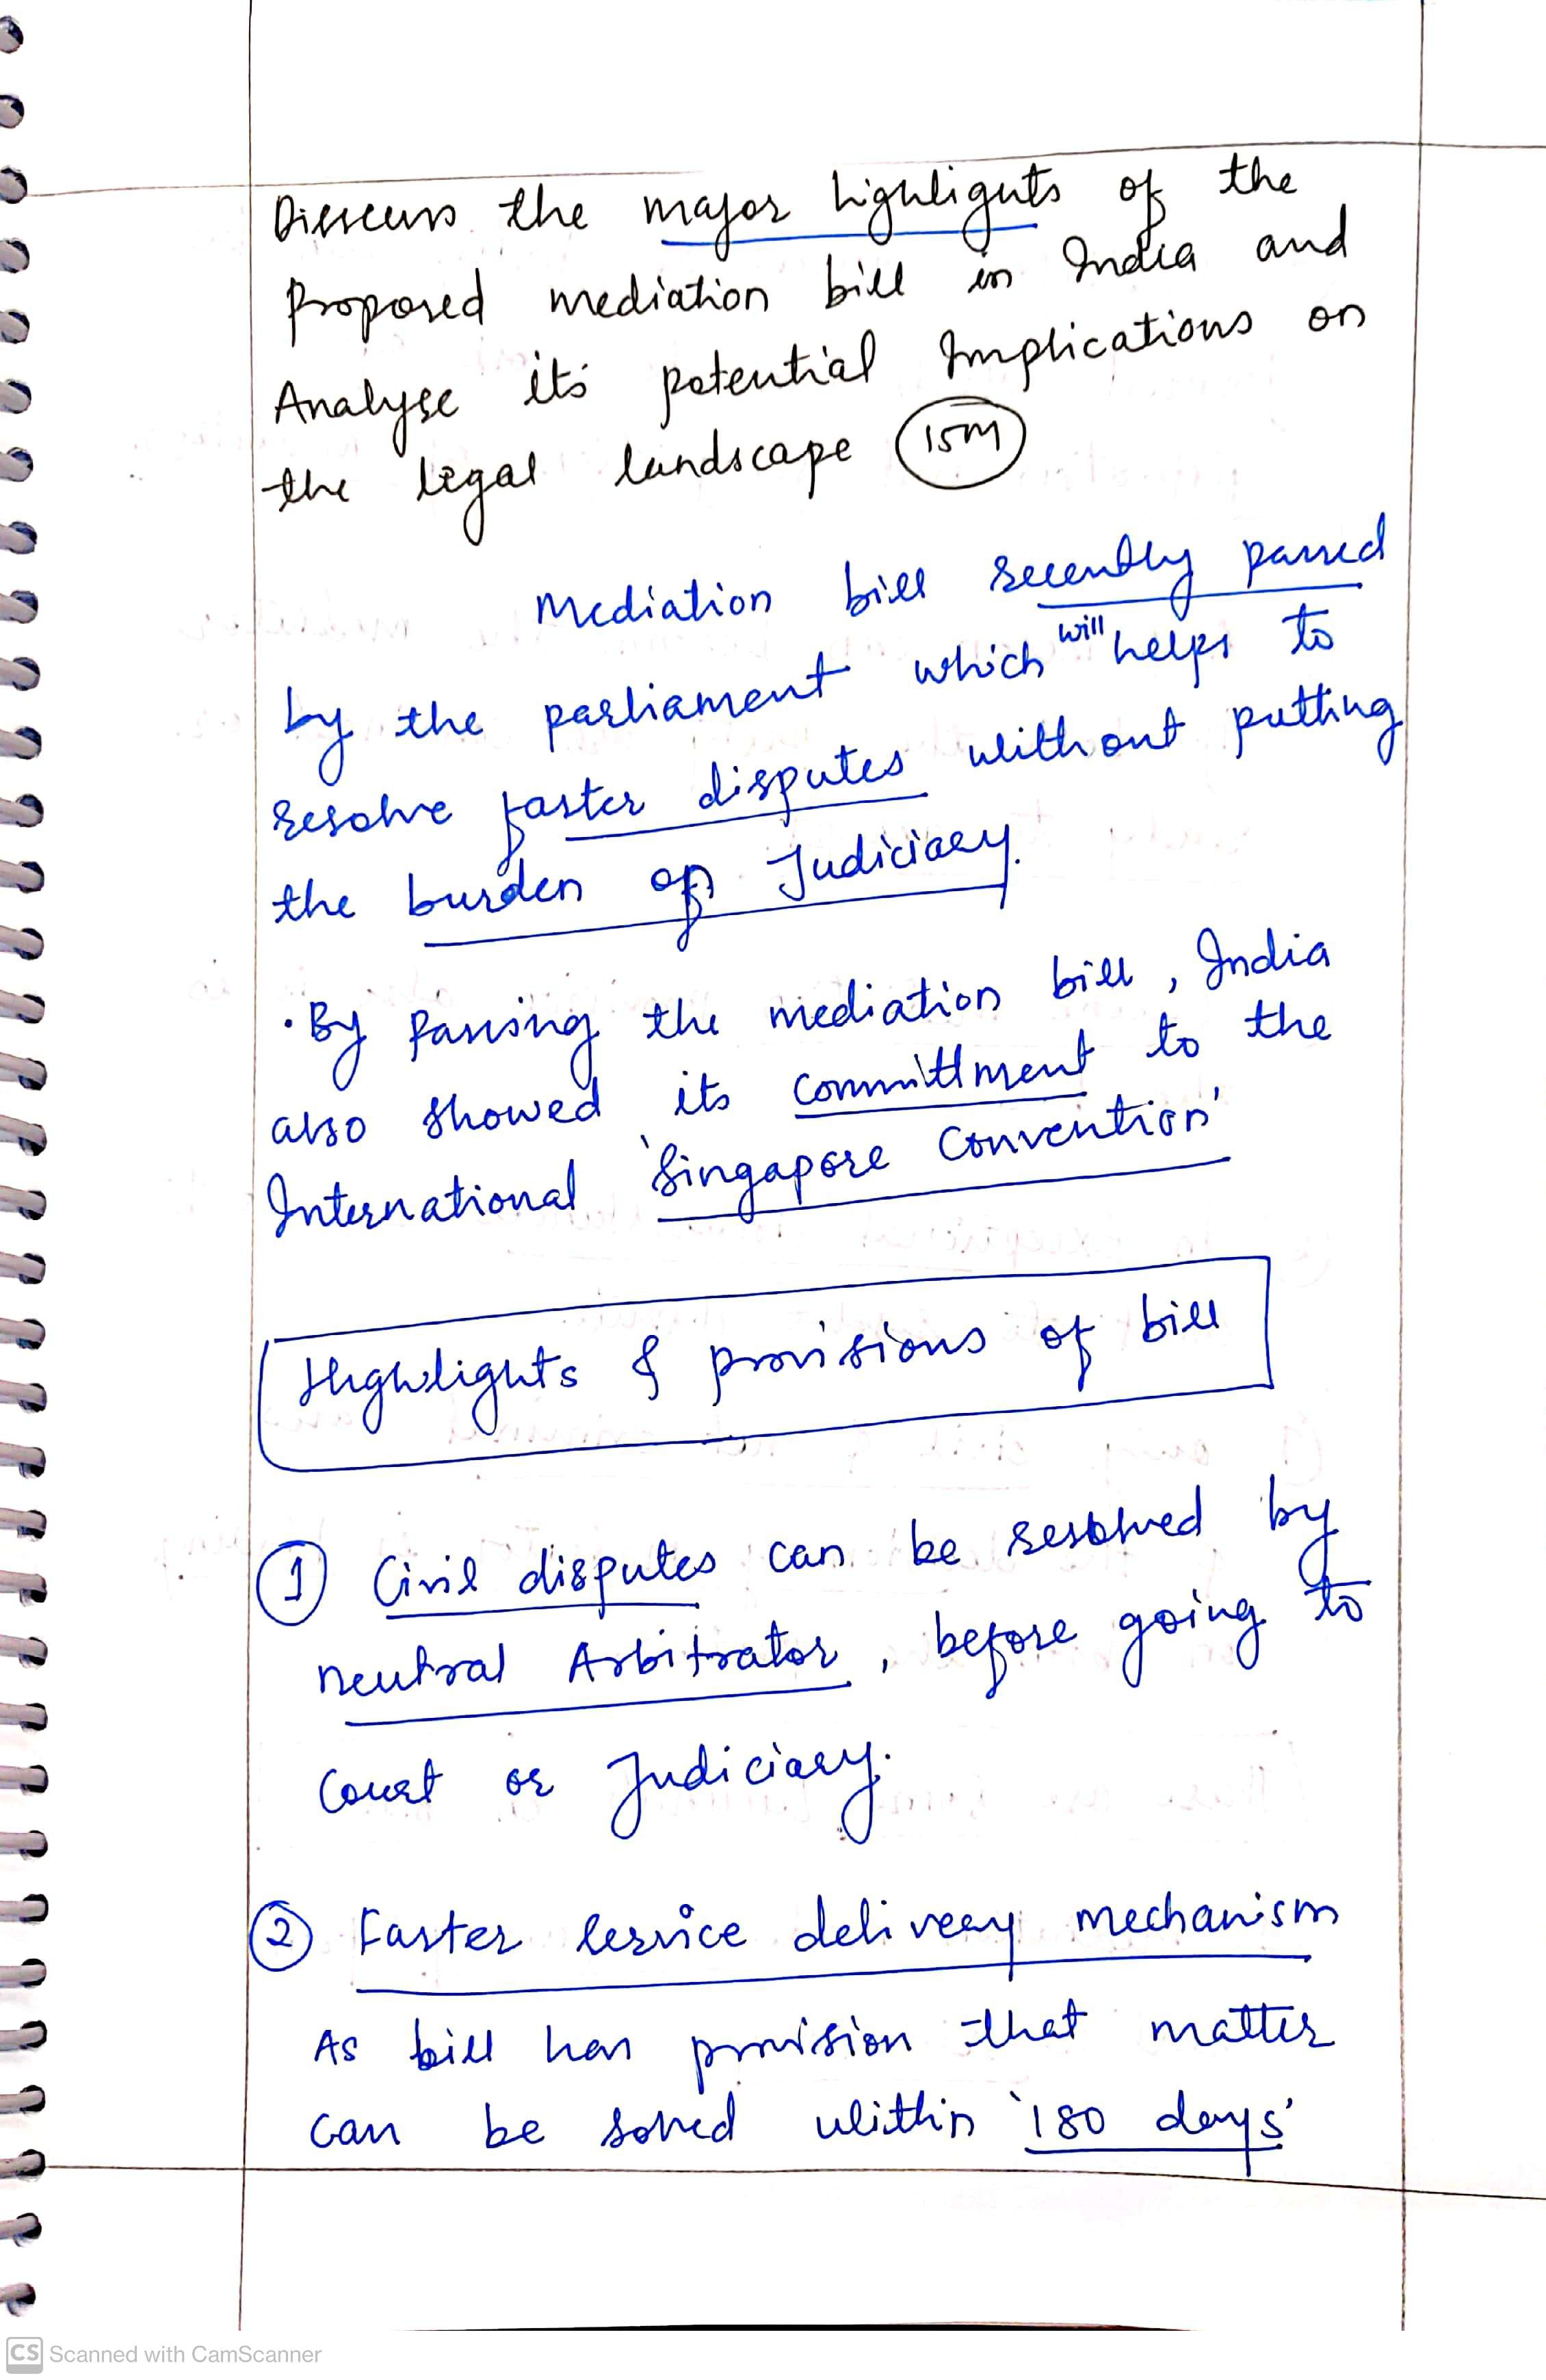 Discuss the major highlights of the
proposed mediation bill in India and
Analyse its potential Implications on
the legal landscape 15M
Mediation bill recently passed
by the parliament which will helps to
resolve faster disputes without putting
the burden on Judiciary.
· By passing the mediation bill, India
also showed its committment to the
International 'Singapore Convention'
Highlights & provisions of bill
1 Civil disputes can be resolved by
neutral Arbitrator, before going to
Court or Judiciary.
2 Faster service delivery mechanism
As bill has provision that matter
can be solved within '180 days'
CS Scanned with CamScanner